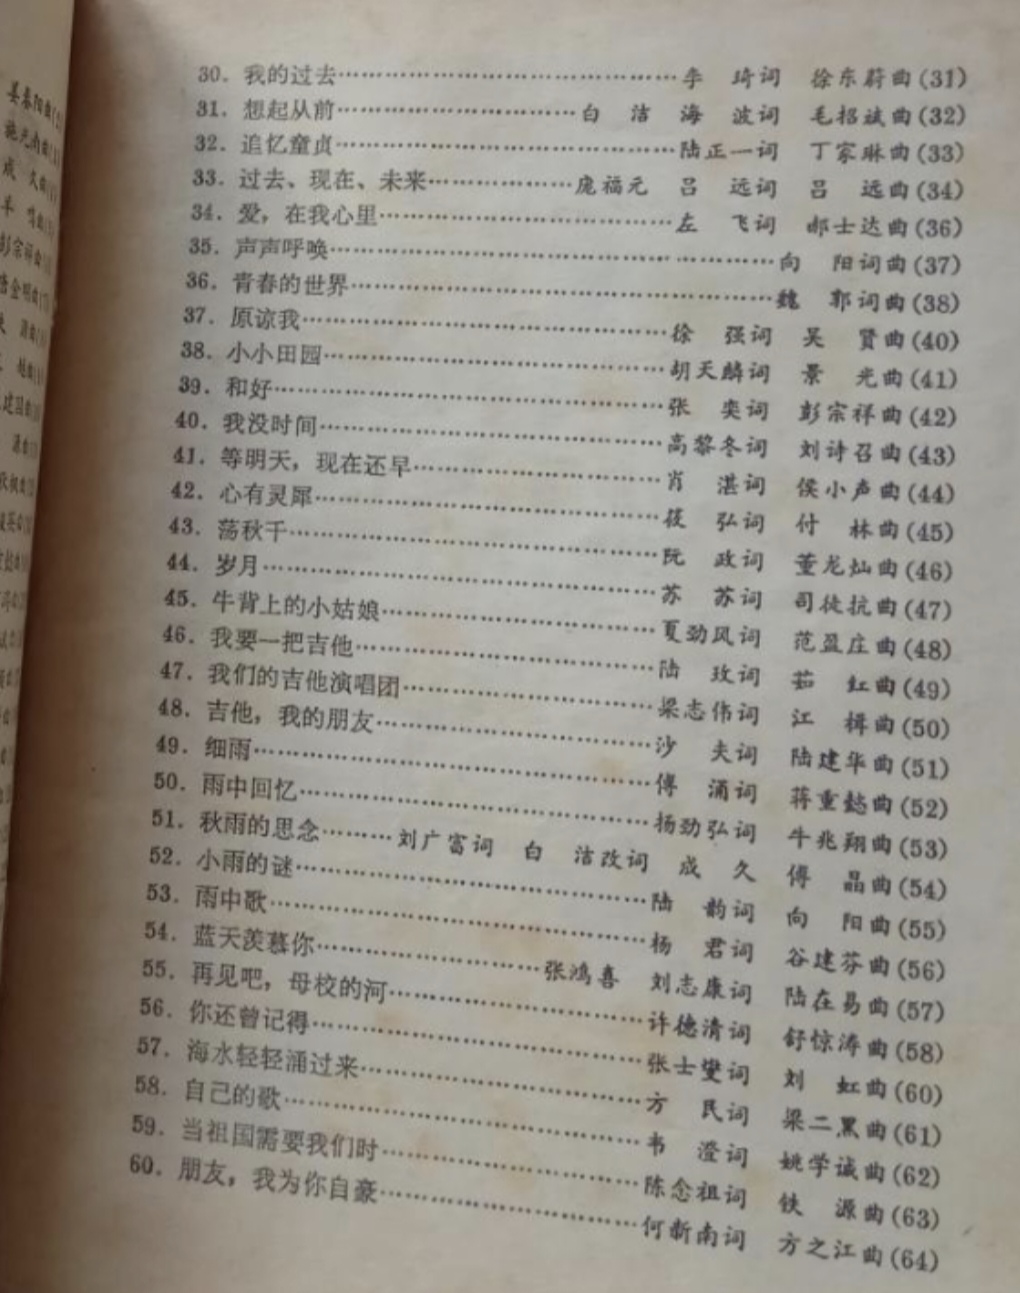 30. 我的过去……李　琦词　徐东蔚曲(31)
31. 想起从前……白　洁　海　波词　毛招斌曲(32)
32. 追忆童贞……陆正一词　丁家琳曲(33)
33. 过去、现在、未来……庞福元　吕　远词　吕　远曲(34)
34. 爱，在我心里……左　飞词　郝士达曲(36)
35. 声声呼唤……向　阳词曲(37)
36. 青春的世界……魏　郭词曲(38)
37. 原谅我……徐　强词　吴　贤曲(40)
38. 小小田园……胡天麟词　景　光曲(41)
39. 和好……张　奕词　彭宗祥曲(42)
40. 我没时间……高黎冬词　刘诗召曲(43)
41. 等明天，现在还早……肖　湛词　侯小声曲(44)
42. 心有灵犀……筱　弘词　付　林曲(45)
43. 荡秋千……阮　政词　董龙灿曲(46)
44. 岁月……苏　苏词　司徒抗曲(47)
45. 牛背上的小姑娘……夏劲风词　范盈庄曲(48)
46. 我要一把吉他……陆　玫词　茹　红曲(49)
47. 我们的吉他演唱团……梁志伟词　江　楫曲(50)
48. 吉他，我的朋友……沙　夫词　陆建华曲(51)
49. 细雨……傅　涌词　蒋重懿曲(52)
50. 雨中回忆……扬劲弘词　牛兆翔曲(53)
51. 秋雨的思念……刘广富词　白　洁改词　成　久　傅　晶曲(54)
52. 小雨的谜……陆　韵词　向　阳曲(55)
53. 雨中歌……杨　君词　谷建芬曲(56)
54. 蓝天羡慕你……张鸿喜　刘志康词　陆在易曲(57)
55. 再见吧，母校的河……许德清词　舒惊涛曲(58)
56. 你还曾记得……张士燮词　刘　虹曲(60)
57. 海水轻轻涌过来……方　民词　梁二黑曲(61)
58. 自己的歌……韦　澄词　姚学诚曲(62)
59. 当祖国需要我们时……陈念祖词　铁　源曲(63)
60. 朋友，我为你自豪……何新南词　方之江曲(64)